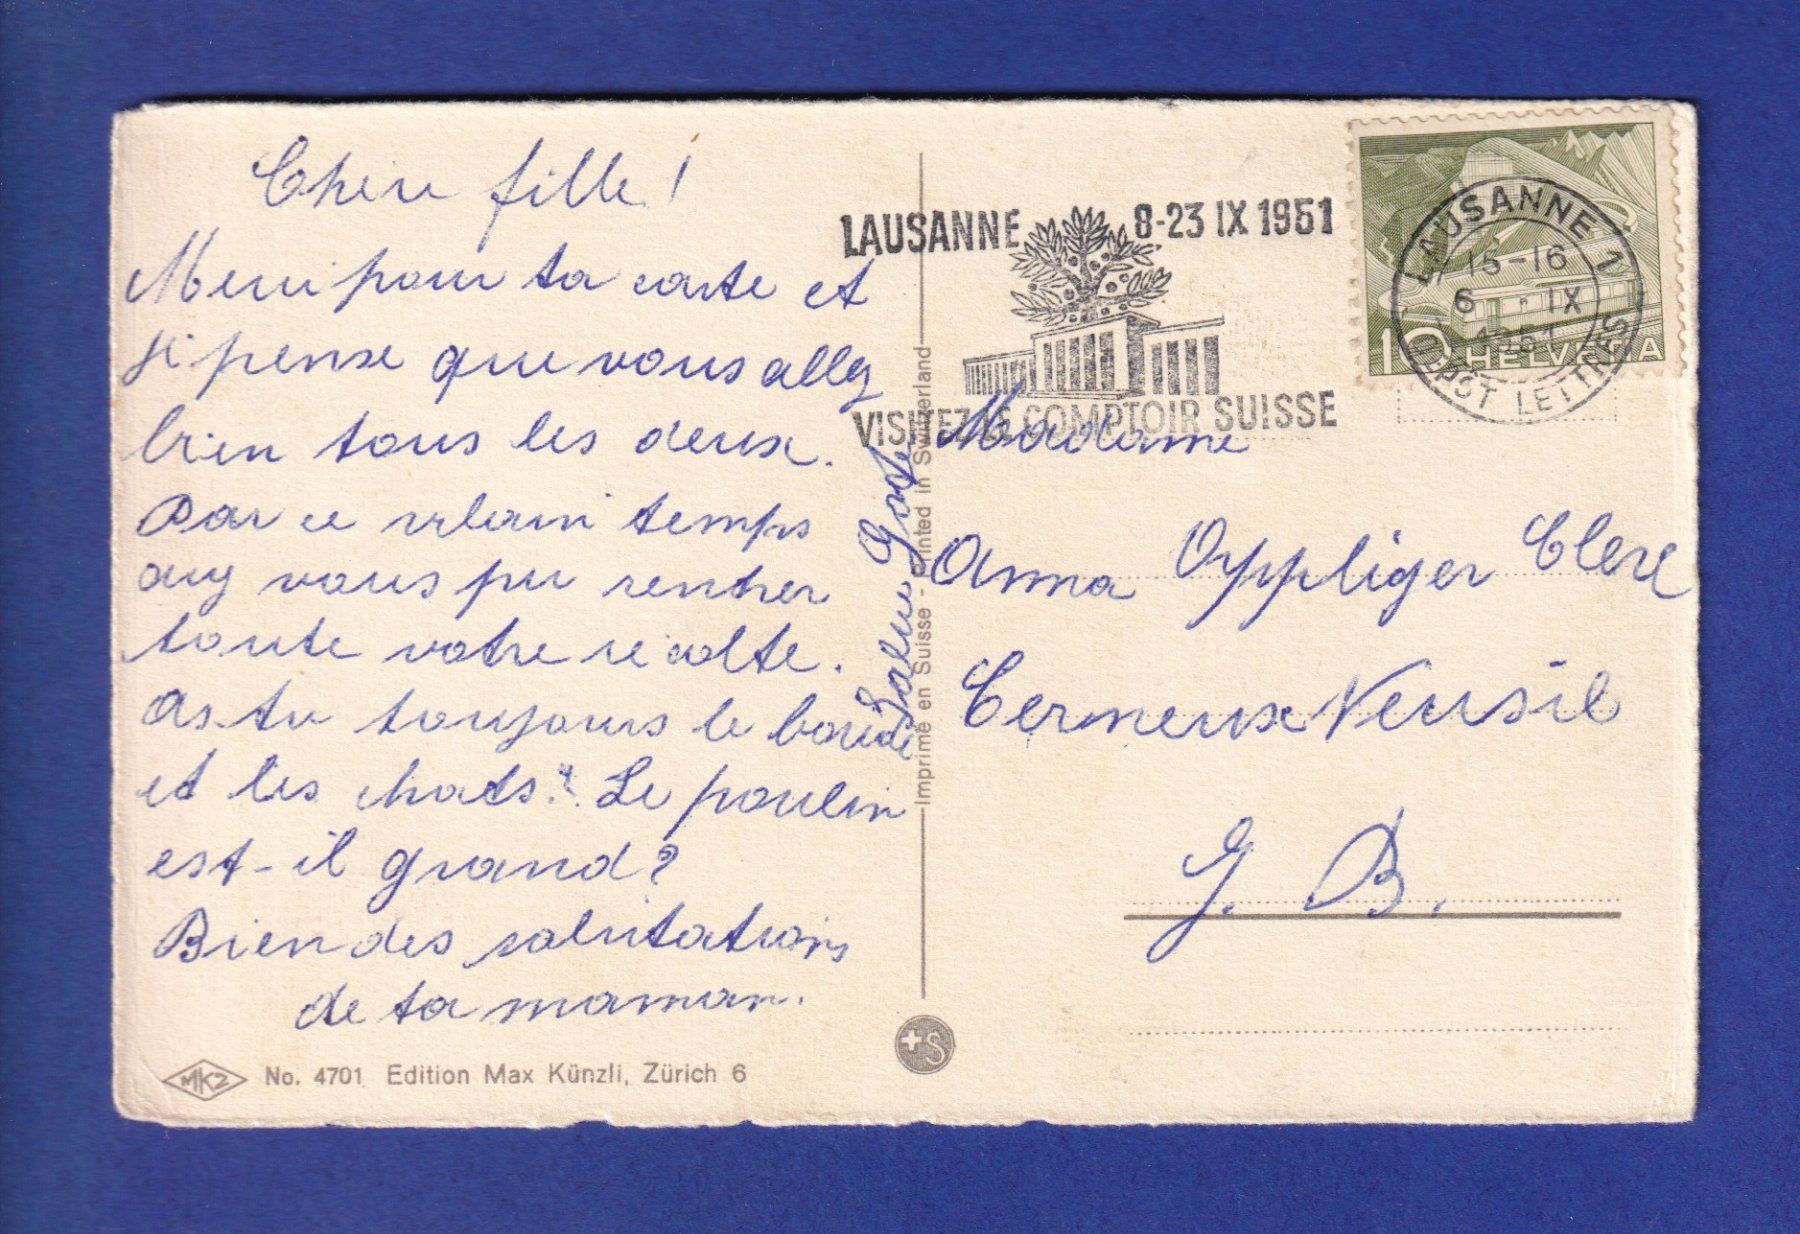 Chère fille !
Merci pour ta carte et
je pense que vous allez
bien tous les deux.
Par ce vilain temps
avez vous pu rentrer
toute votre récolte.
As tu toujours le
et les chats? Le poulin
est-il grand?
Bien des salutations
de ta maman.
Salue
No. 4701 Edition Max Künzli, Zürich 6
MKZ
Imprimé en Suisse - Printed in Switzerland
+S
LAUSANNE 8-23 IX 1951
VISITEZ LE COMPTOIR SUISSE
LAUSANNE 1
15-16
6 IX
1951
EXP. LETTRES
10 HELVETIA
Madame
Anna Oppliger Clerc
Cerneux Veusil
J. B.